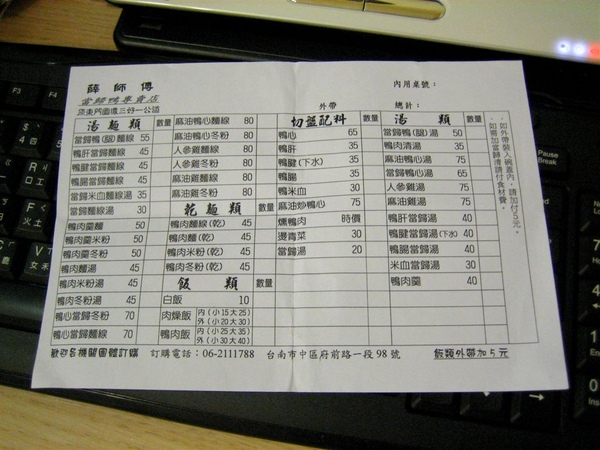 薛師傅
當歸鴨專賣店
內用桌號：
外帶
總計：
湯麵類 數量
當歸鴨(腿)麵線 55
鴨肝當歸麵線 45
鴨腱當歸麵線 45
鴨腸當歸麵線 45
當歸米血麵線湯 35
當歸麵線湯 30
鴨肉羹麵 50
鴨肉羹米粉 50
鴨肉羹冬粉 50
鴨肉麵湯 45
鴨肉米粉湯 45
鴨肉冬粉湯 45
鴨心當歸冬粉 70
鴨心當歸麵線 70
麻油鴨心麵線 80
麻油鴨心冬粉 80
人參雞麵線 80
人參雞冬粉 80
麻油雞麵線 80
麻油雞冬粉 80
乾麵類 數量
鴨肉麵線(乾) 45
鴨肉麵(乾) 45
鴨肉米粉(乾) 45
鴨肉冬粉(乾) 45
飯類 數量
白飯 10
肉燥飯 內(小15大25)
外(小20大30)
鴨肉飯 內(小25大35)
外(小30大40)
切盤配料 數量
鴨心 65
鴨肝 35
鴨腱(下水) 35
鴨腸 35
鴨米血 30
麻油炒鴨心 75
燻鴨肉 時價
燙青菜 30
當歸湯 20
湯類 數量
當歸鴨(腿)湯 50
鴨肉清湯 35
麻油鴨心湯 75
當歸鴨心湯 65
人參雞湯 75
麻油雞湯 75
鴨肝當歸湯 40
鴨腱當歸湯(下水) 40
鴨腸當歸湯 40
米血當歸湯 30
鴨肉羹 40
．如外帶裝入碗蓋內，請加付5元。
．如需加當歸滷請付食材費。
歡迎各機關團體訂購
訂購電話：06-2111788
台南市中區府前路一段98號
飯類外帶加5元
Pause
Break
F3
F4